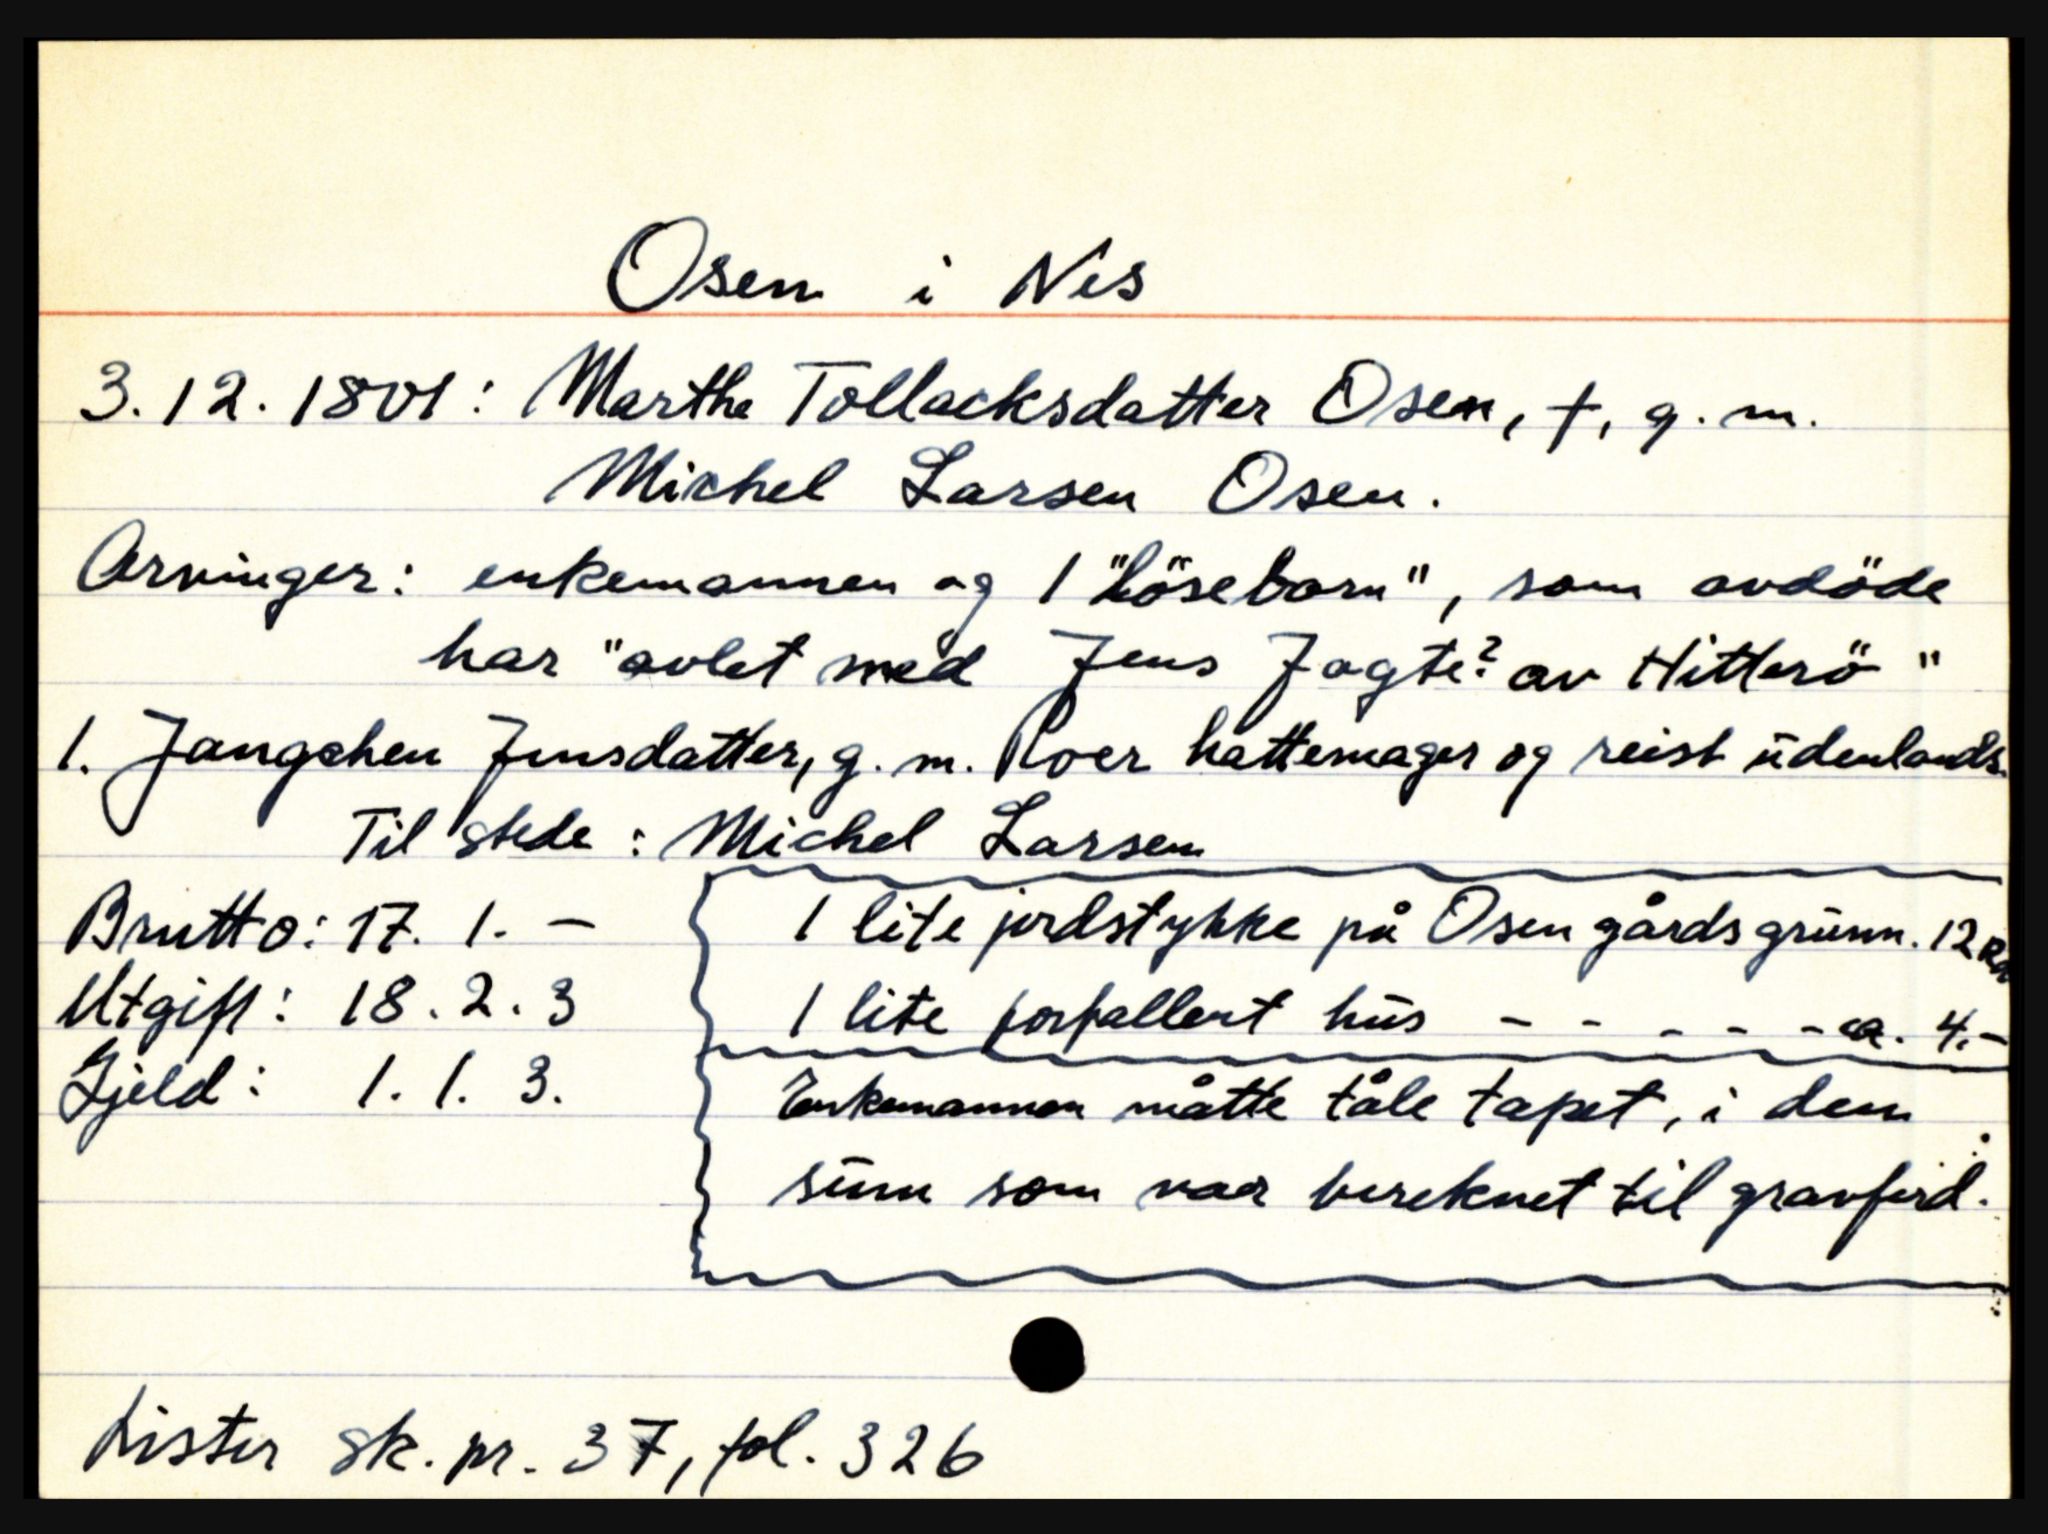 Osen i Nes
3.12.1801: Marthe Tollacksdatter Osen, †, g. m.
Michel Larsen Osen.
Arvinger: enkemannen og 1 "lösebarn", som avdöde
har "avlet med Jens Jagte? av Hitterö"
1. Jangchen Jensdatter, g. m. Roer hattemager og reist ūdenlands.
Til stede: Michel Larsen
Brutto: 17. 1. –
Utgift: 18. 2. 3
Gjeld: 1. 1. 3.
1 lite jordstykke på Osen gårds grūnn. 12 Rd
1 lite forfallent hūs - - - - - ca. 4.-
Enkemannen måtte tåle tapet, i den
sūm som var bereknet til gravferd.
Lister sk. pr. 37, fol. 326